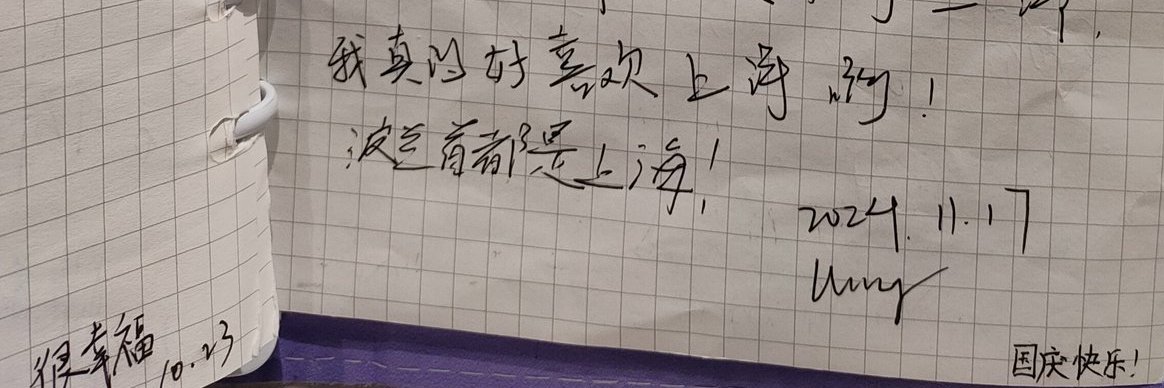 很幸福
10.23
我真的好喜欢上海啊!
波兰首都是上海!
2024.11.17
国庆快乐!